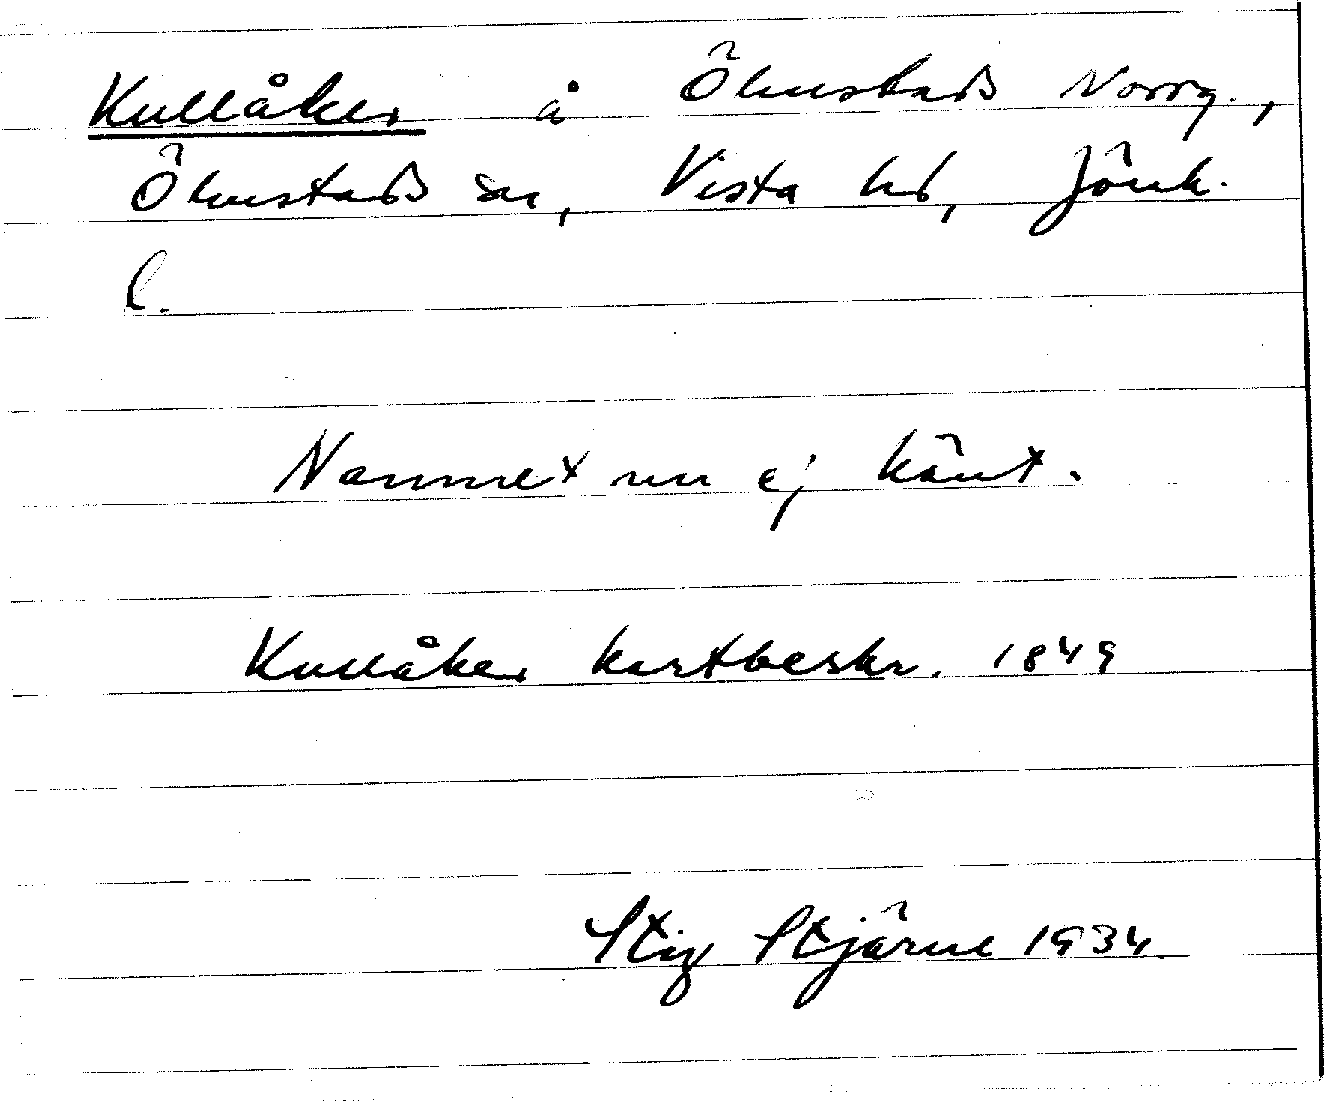 Kullåker å Ölmstads Norrg.,
Ölmstads sn, Vista hd, Jönk.
l.
Namnet nu ej känt.
Kullåker kartbeskr. 1849
Stig Stjärne 1934